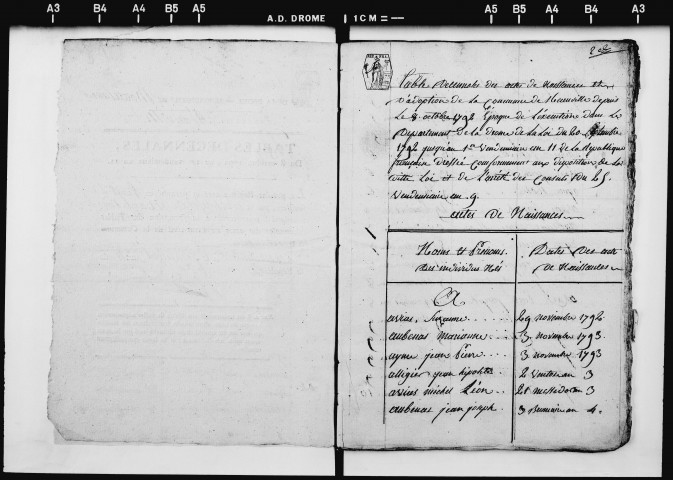 A3 B4 A4 B5 A5 A.D. DROME 1CM = A5 B5 A4 B4 A3
Table Decennale des actes de Naissances et
d'adoption de la Commune de depuis
Le 8 octobre 1792 Époque de l'execution dans le
Departement de la drome de la Loi du 20 septembre
1792 jusqu'au 1er vendemiaire an 11 de la République
française dressée conformement aux disposition de la
ditte Loi et de l'arrêté des Consuls du 25
Vendemiaire an 9
actes de Naissances
Noms et Prénoms Dates des actes
des individus Nés de Naissances
A
arsias, Suzanne 29 novembre 1792
aubenas marianne 3 novembre 1793
ayme jean Pierre 3 novembre 1793
alligier jean hipolite 2 Ventose an 3
arsias michel Léon 28 messidor an 3
aubenas jean joseph 3 Brumaire an 4